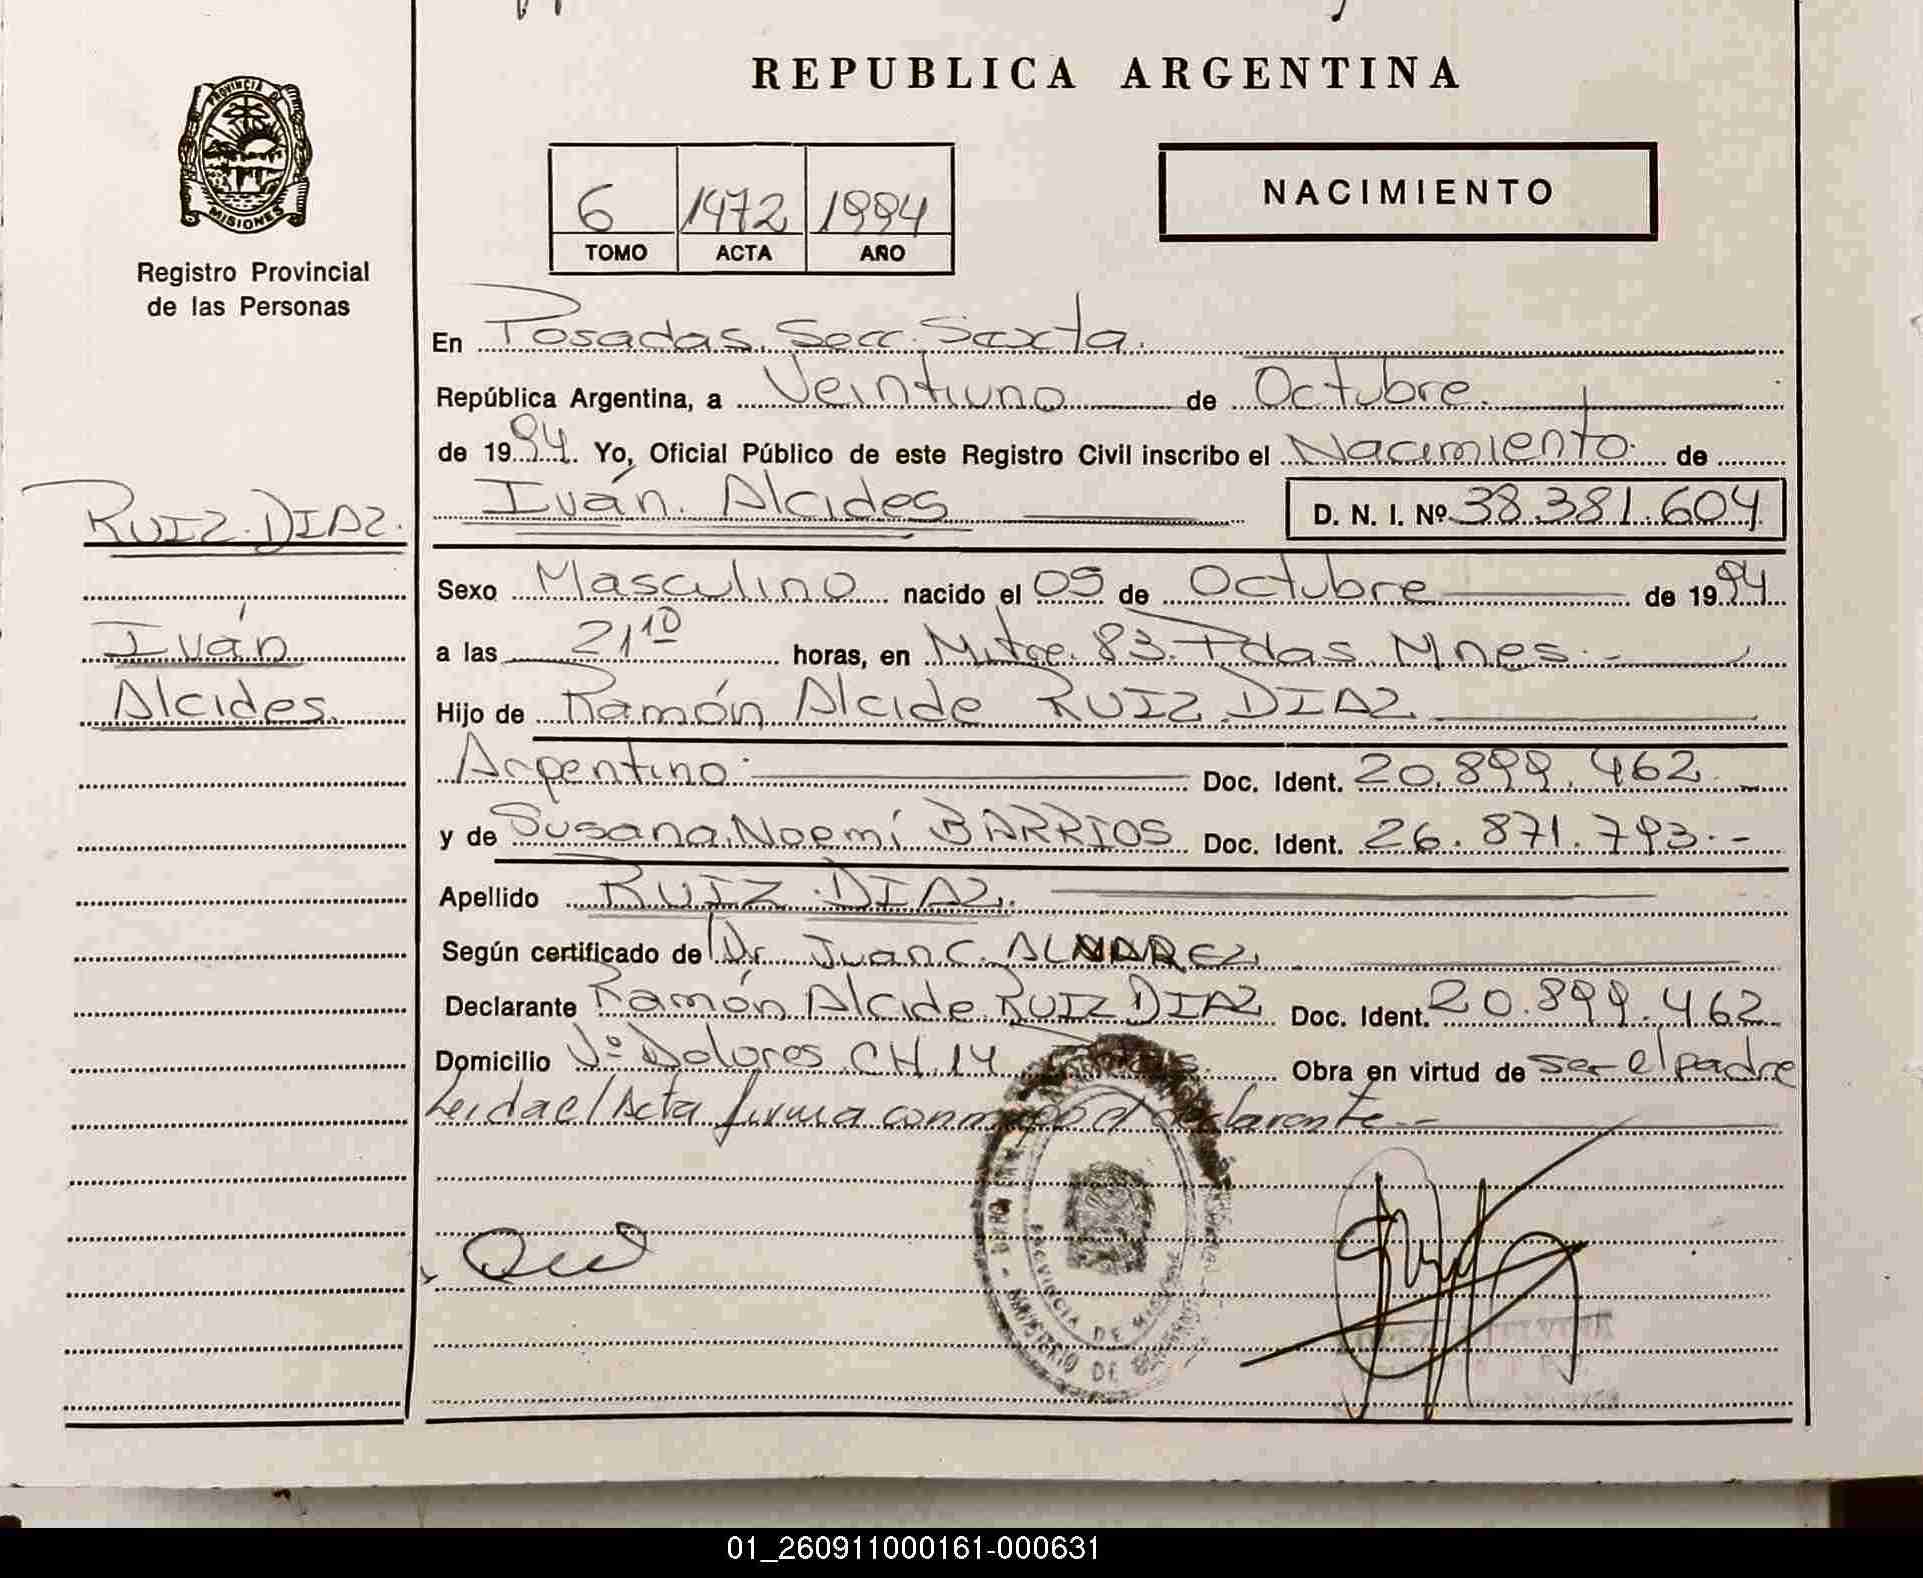 REPUBLICA ARGENTINA
PROVINCIA DE
MISIONES
Registro Provincial
de las Personas
6 1472 1994
TOMO ACTA AÑO
NACIMIENTO
En Posadas. Secc. Sexta.
República Argentina, a Veintiuno de Octubre.
de 1994. Yo, Oficial Público de este Registro Civil inscribo el Nacimiento de
Iván. Alcides D. N. I. Nº 38.381.604
RUIZ DIAZ.
Iván
Alcides.
Sexo Masculino nacido el 05 de Octubre de 1994
a las 21 10 horas, en Mitre. 83. Pdas Mnes.-
Hijo de Ramón Alcide RUIZ DIAZ
Argentino Doc. Ident. 20.899.462
y de Susana Noemí BARRIOS Doc. Ident. 26.871.793.-
Apellido RUIZ DIAZ.
Según certificado de Dr. Juan C. ALVAREZ
Declarante Ramón Alcide RUIZ DIAZ Doc. Ident. 20.899.462
Domicilio Vº Dolores CH. 14 Pdas. Obra en virtud de ser el padre
Leida el Acta firma conmigo el declarante.-
PROVINCIA DE MISIONES
MINISTERIO DE
01_260911000161-000631